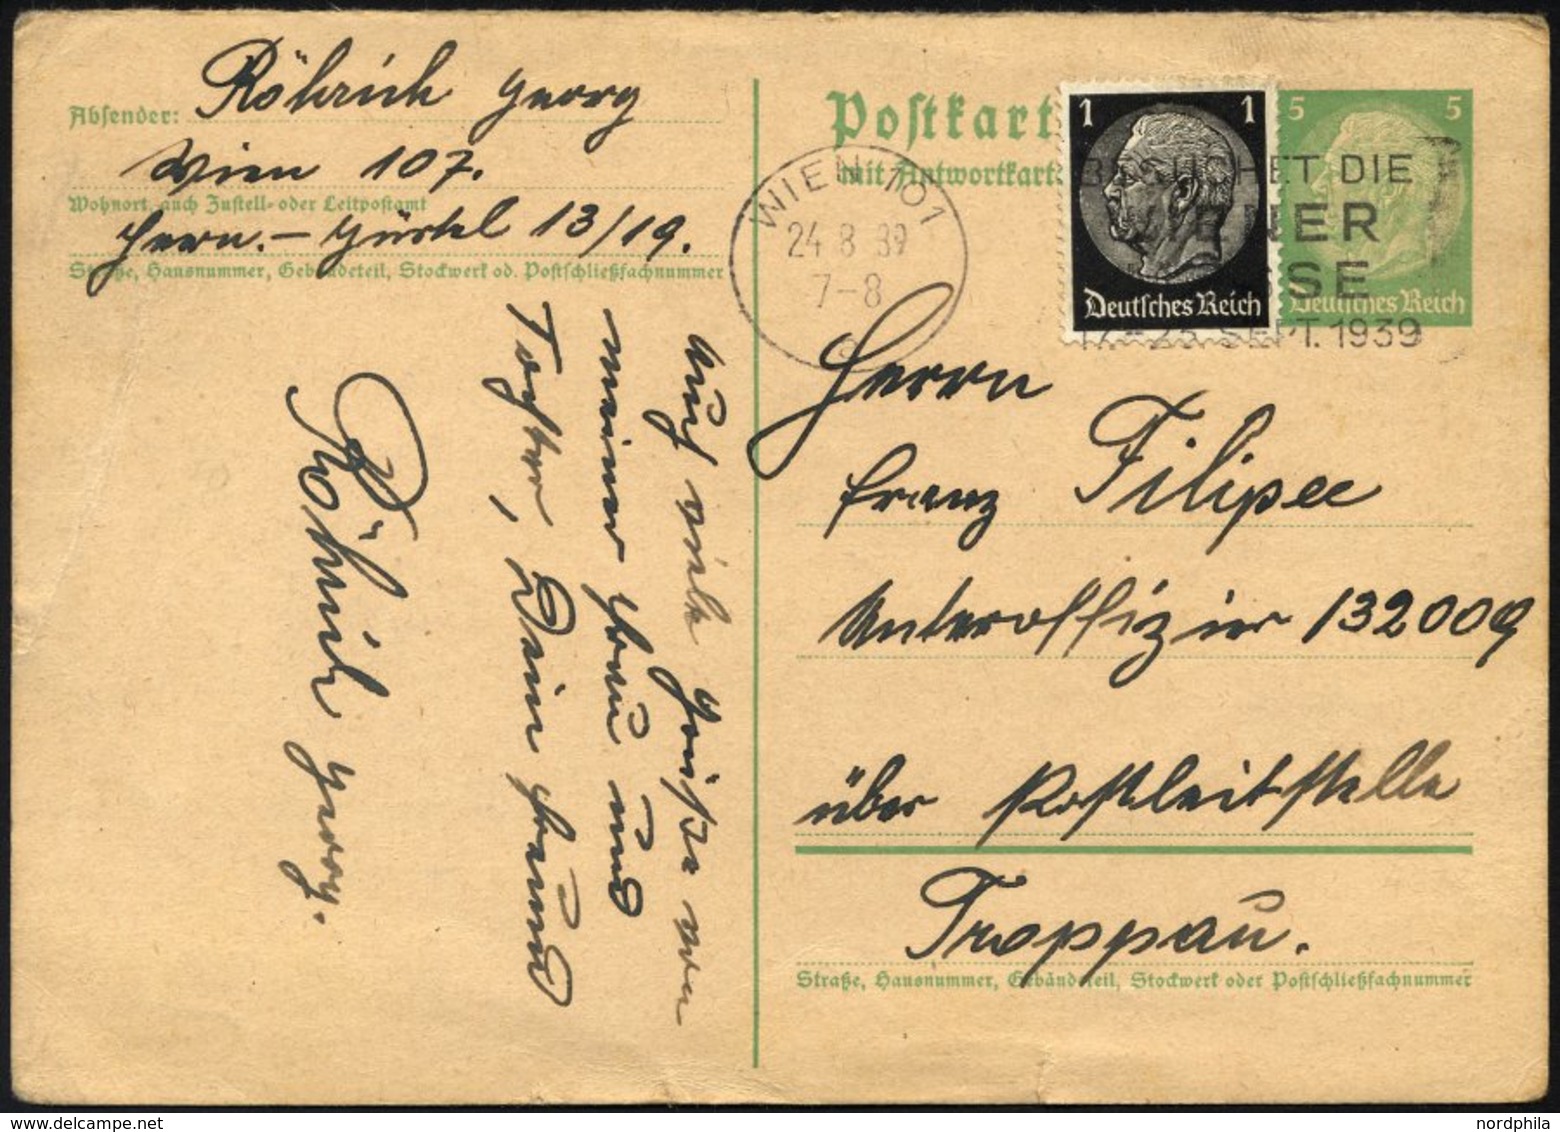 Absender: Röhrich Georg
Wien 107.
Wohnort, auch Zustell- oder Leitpostamt
Hern.-Gürtel 13/19.
Straße, Hausnummer, Gebäudeteil, Stockwerk od. Postschließfachnummer
Auch viele Grüße von
meiner Frau und
Tochter, Dein Freund
Röhrich Georg.
Postkart
mit Antwortkart
1 1
Deutsches Reich
5 5
Deutsches Reich
WIEN 101
24.8.39
7-8
BESUCHET DIE
WIENER
MESSE
17.-23. SEPT. 1939
Herrn
Franz Filipec
Unteroffizier 132009
über Postleitstelle
Troppau.
Straße, Hausnummer, Gebäudeteil, Stockwerk oder Postschließfachnummer
nordphila